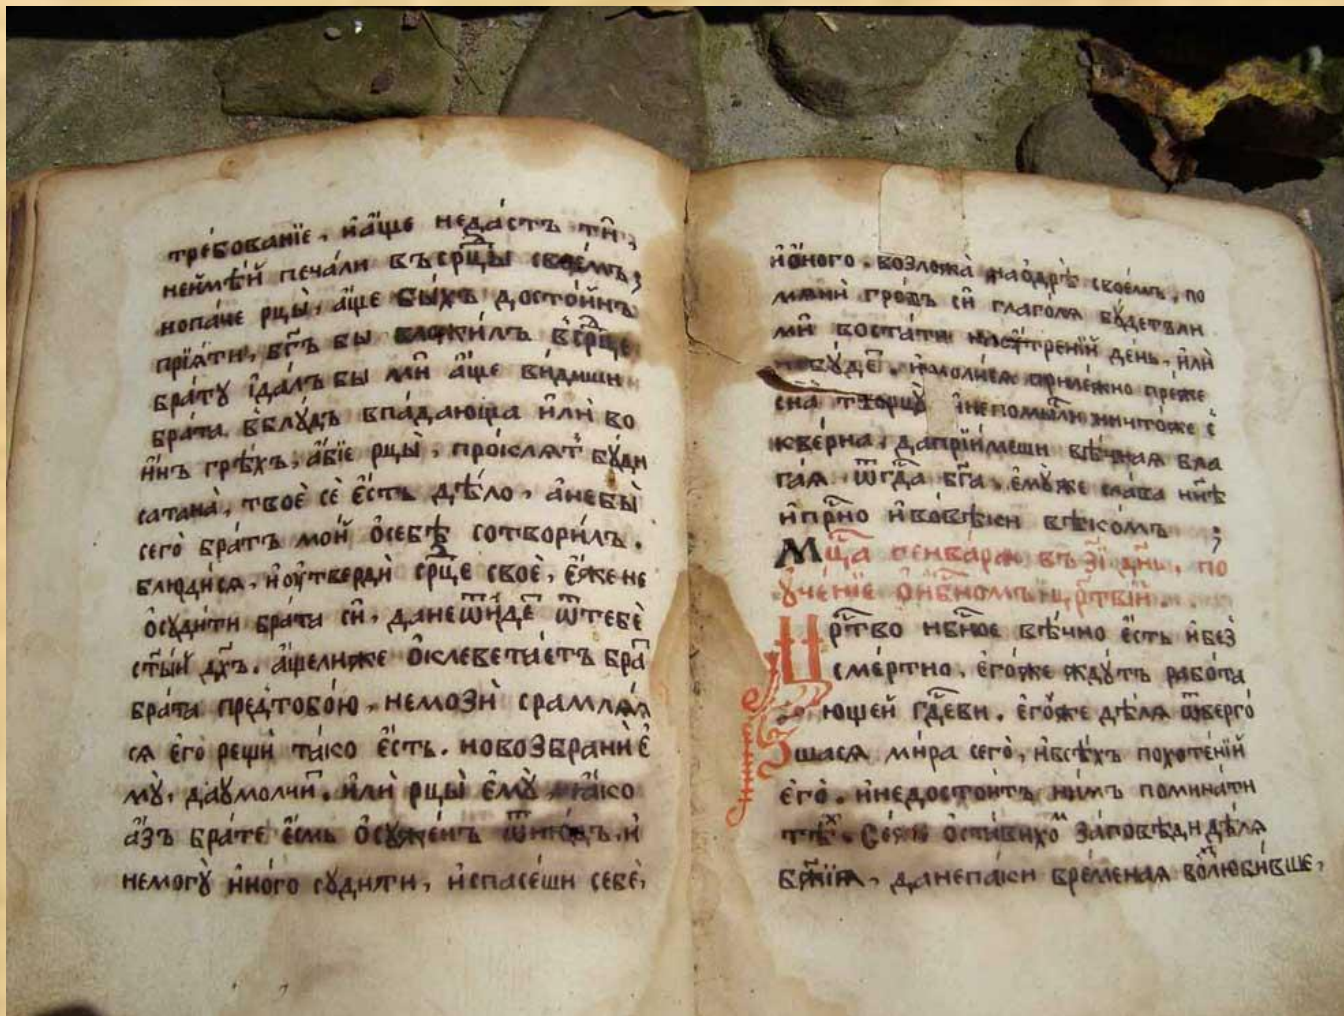 тре́бованїе, и҆а҆́ще неда́стъ тѝ,
неи҆мѣ́й печа́ли въср҃цы свое́мъ;
нопа́че рцы̀, а҆́ще бы́хъ досто́инъ
прїѧ́ти, бг҃ъ бы вложи́лъ вср҃це
бра́ту і҆да́лъ бы мѝ а҆́ще ви́диши
бра́та в̾блу́дъ впа́дающа и҆лѝ во
и҆́нъ грѣ́хъ, а҆́бїе рцы̀, про́клѧт бу́ди
сатана̀, твоѐ сѐ е҆́сть дѣ́ло, а҆небы̀
сего̀ бра́тъ мо́й ѡ҆себѣ̀ сотвори́лъ.
блюди́сѧ, и҆ѹ҆твердѝ ср҃це своѐ, е҆́же не
ѡ҆суди́ти бра́та сѝ, данеѿи́де ѿтебѐ
ст҃ы́й дх҃ъ. а҆́щелиже ѡ҆клевета́етъ бра
бра́та предтобо́ю, немозѝ срамлѧ́ѧ
сѧ є҆го̀ рещѝ та́ко є҆́сть. новозбранѝ є҆
мꙋ̀, даумолчи. и҆лѝ рцы̀ є҆мꙋ̀ та́ко
а҆́зъ бра́те є҆́смь ѡ҆суже́нъ и҆
немогꙋ̀ и҆но́го суди́ти, и҆спасе́ши себѐ,
и҆о҆́ного. возложа̀ наѻдрѣ̀ свое́мъ, по
мѧнѝ гро́бъ сѝ глаго́лѧ бу́детъли
мѝ воста́ти де́нь, и҆лѝ
небу́де. и҆моли́сѧ приле́жно пре́же
сна̀ творцу̀ і҆непомы́сли ничто́же с
кве́рна, дапрїи́меши вѣ́чнаѧ бла
га́ѧ ѿг҃да бг҃а, є҆му́же сла́ва нн҃ѣ
и҆при҃но и҆вовѣ́ки вѣко́мъ ;
Мц҃а генва́рѧ въ з҃і дн҃ь, по
ꙋче́нїе ѡ҆нб҃номъ цр҃твїи.
Цр҃тво нб҃ное вѣ́чно є҆́сть и҆без̾
сме́ртно, є҆го́же жду́тъ рабо́та
ющей гд҃еви. є҆го́же дѣ́лѧ ѿверго́
шасѧ ми́ра сего̀, и҆всѣ́хъ похоте́нїй
є҆го̀. и҆недосто́итъ ни́мъ помина́ти
тѣх. ѡ҆ста́вихом за́повѣди дѣ́лѧ
бж҃їѧ, данепа́ки вре́менаѧ возлюби́вше,